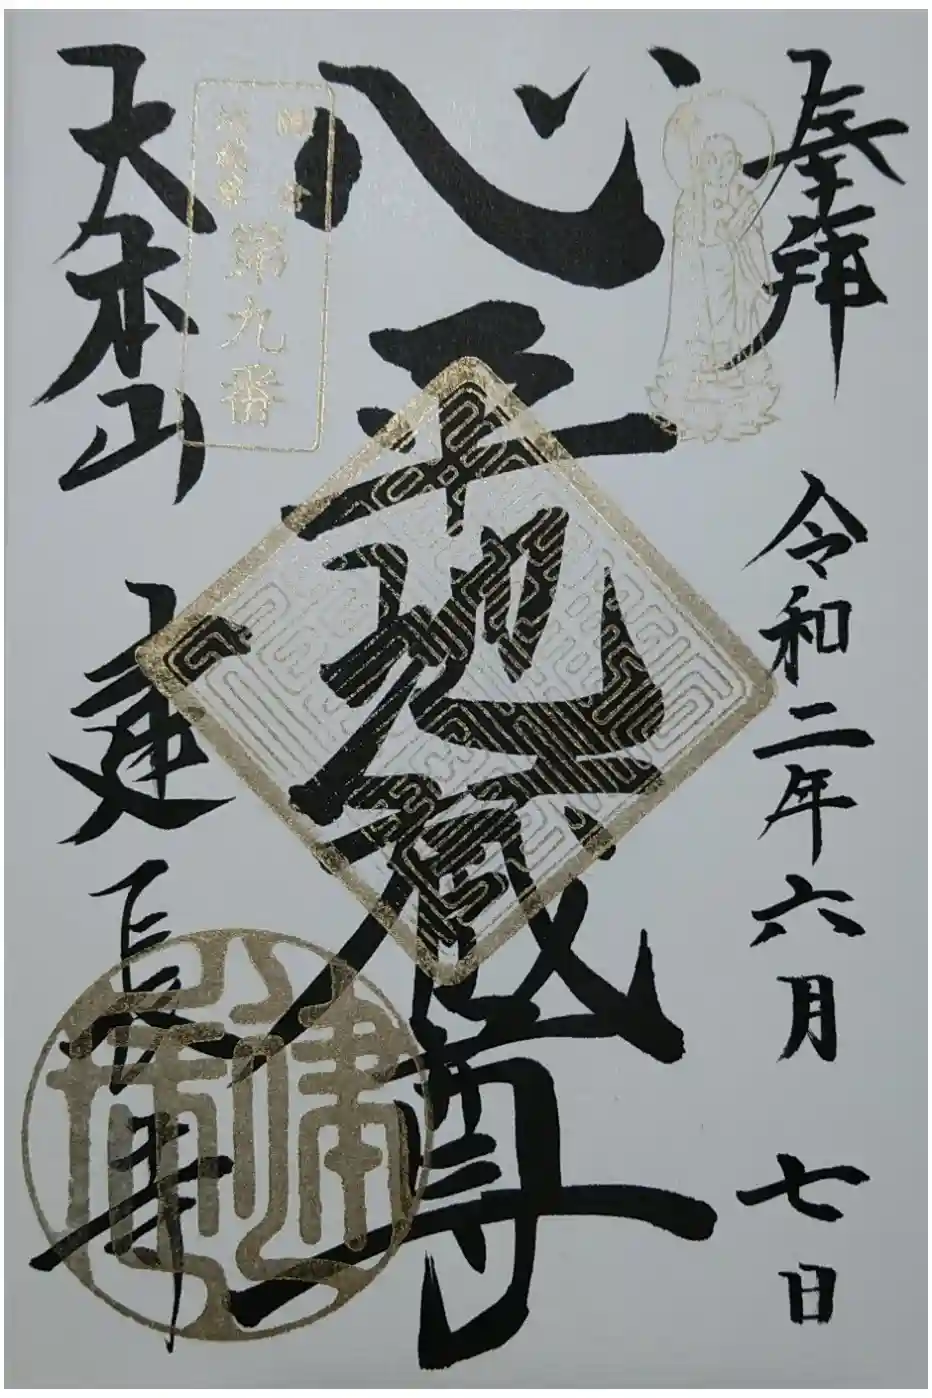 奉拝
令和二年六月七日
心平地蔵尊
第九番
大本山
建長寺